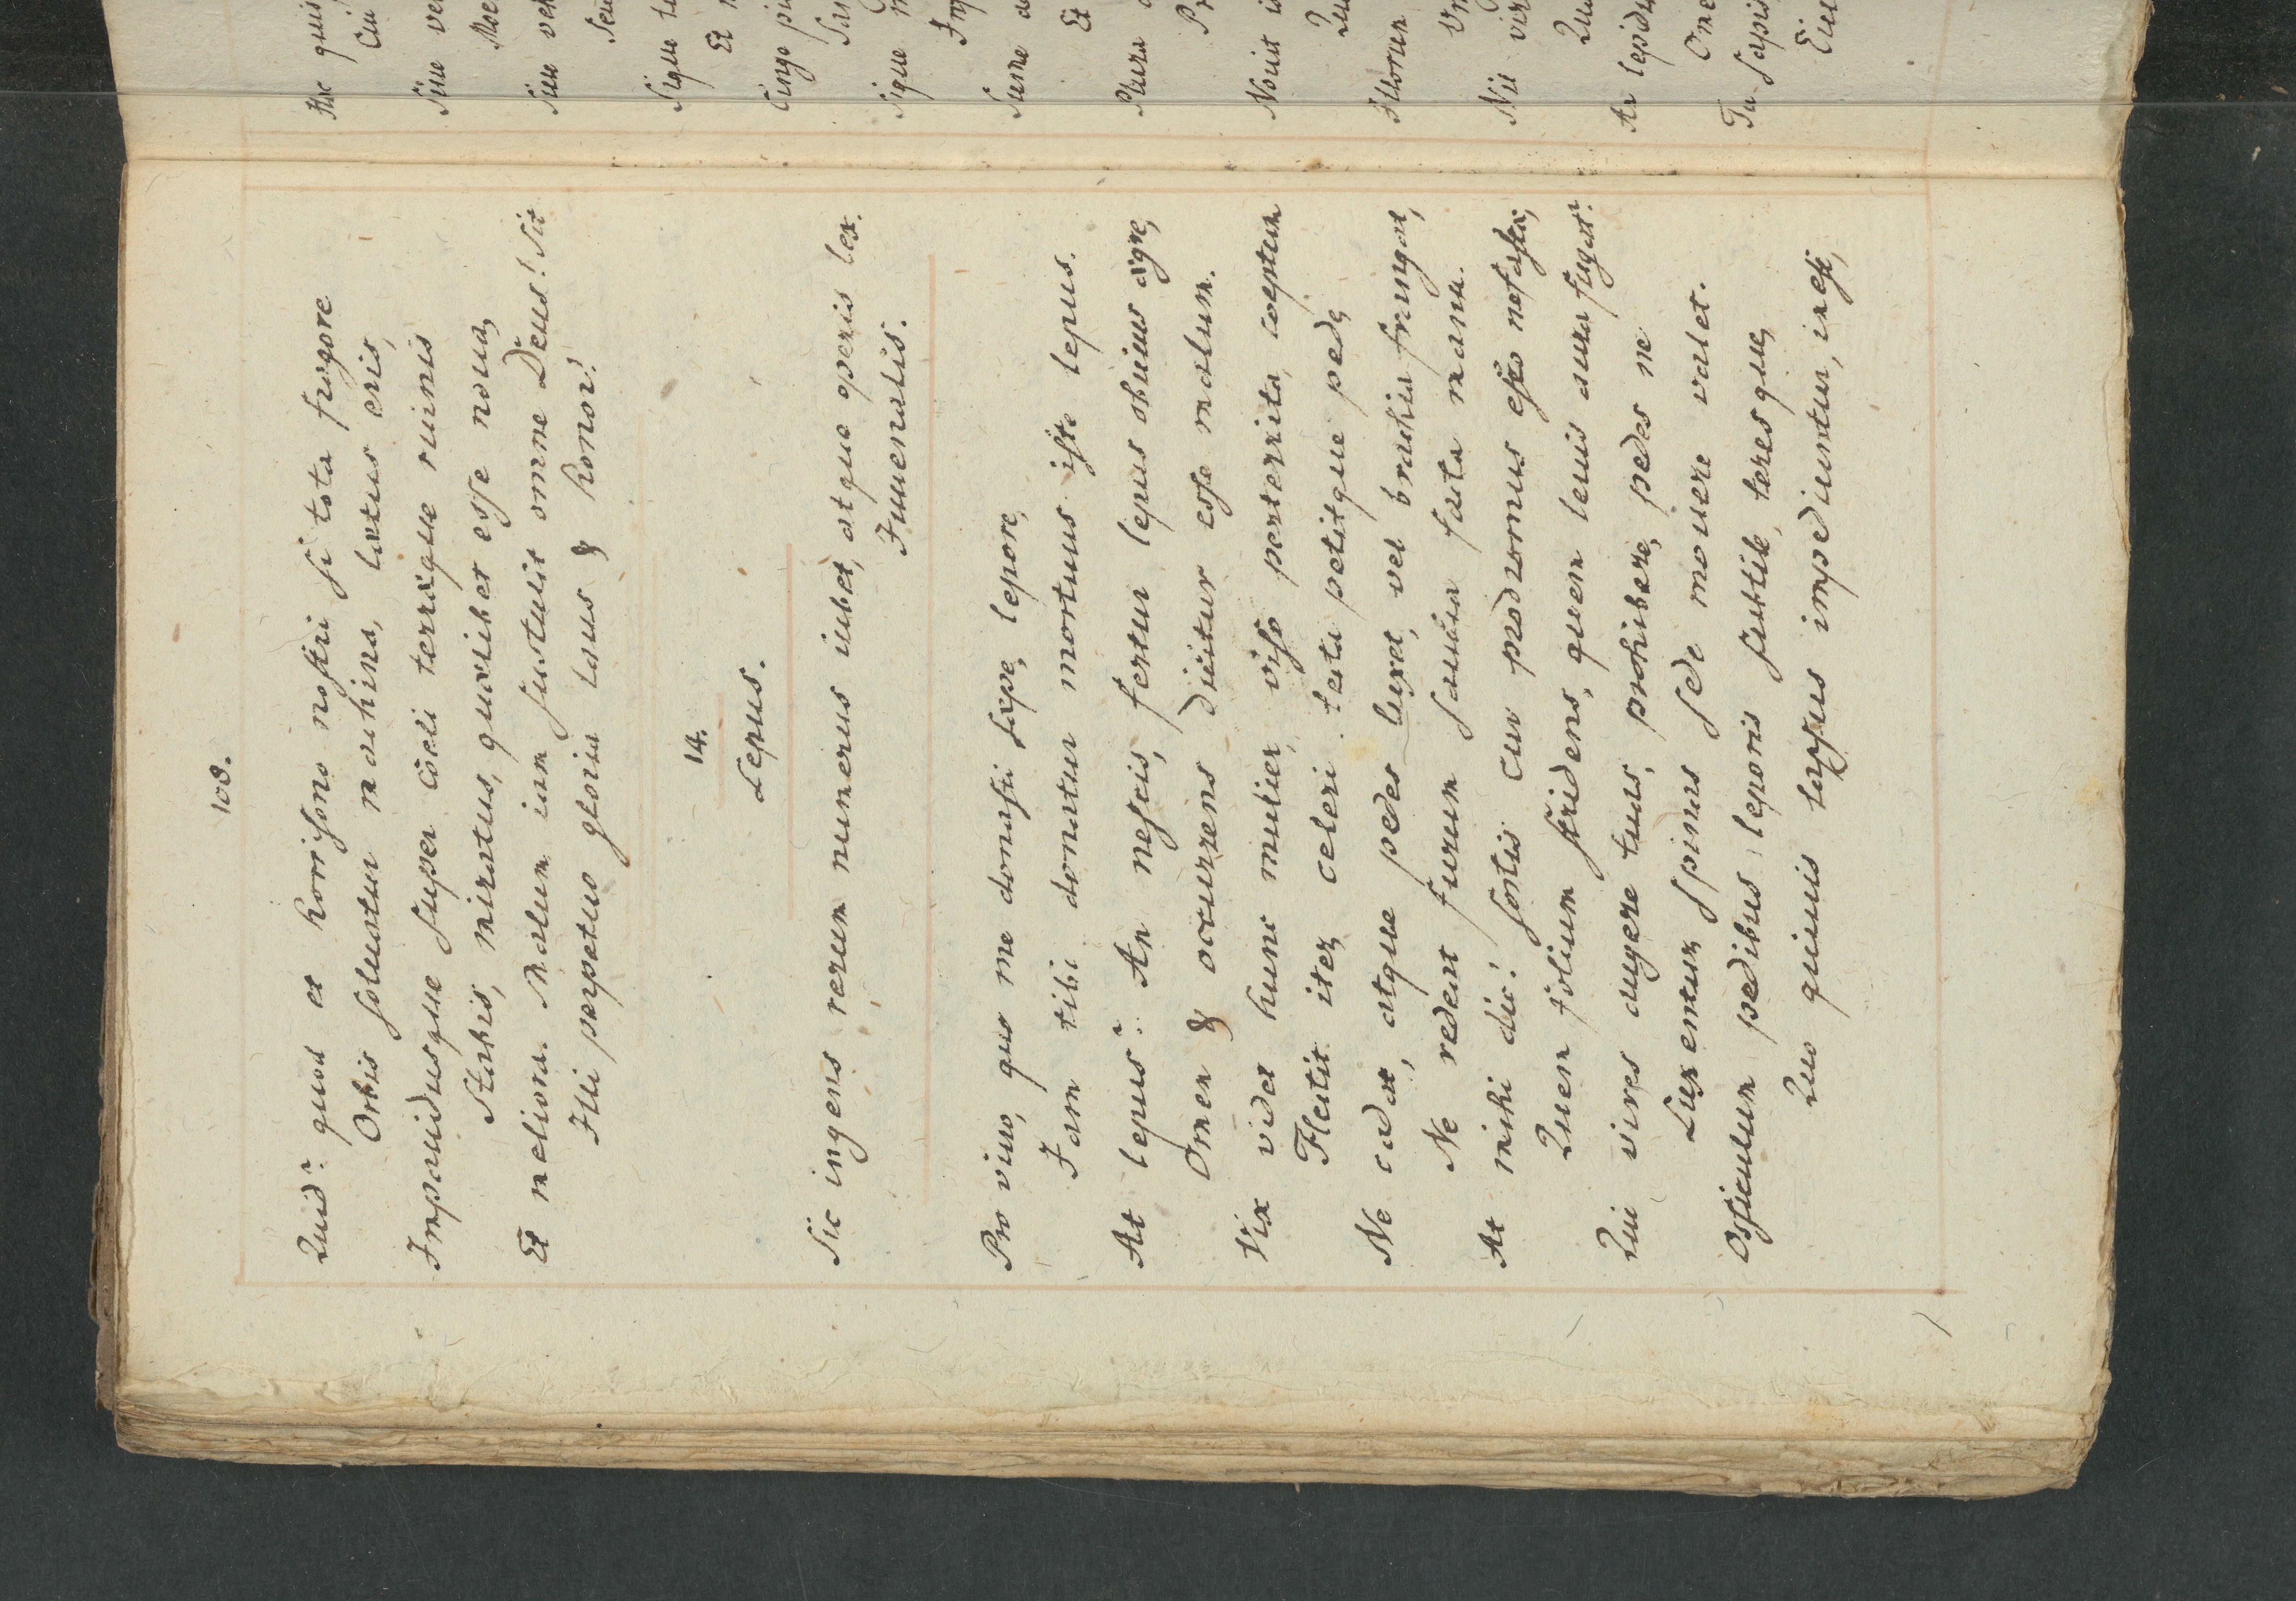 108.
Quid? quod et horrisono nostri si tota fragore
Orbis soluatur machina, laetus eris,
Impauidusque super coeli terraeque ruinis
Stabis, miratus, quaelibet esse noua,
Et meliora. Malum iam sustulit omne Deus! Sit
Illi perpetuo gloria laus & honor!
14.
Lepus.
Sic ingens rerum numerus iubet, atque operis lex.
Iuuenalis.
Pro viuo, quo me donasti saepe, lepore,
Iam tibi donatur mortuus iste lepus.
At lepus? An nescis, fertur lepus obuius aegre,
Omen & occurrens dicitur esse malum.
Vix videt hunc mulier, viso perterrita, coeptum
Flectit iter, celeri tecta petitque pede,
Ne cadat, atque pedes luxet, vel brachia frangat,
Ne redeat furum saucia facta manu.
At mihi dic! sortis cur prodromus esto nefastae,
Quem folium stridens, quem leuis aura fugat?
Qui vires augere tuus, prohibere, pedes ne
Luxentur, spinas sede mouere valet.
Ossiculum pedibus leporis subtile, teresque,
Quo quiuis lapsus impediuntur, inest,
Hac quis
Cui
Siue ve
Siue vel
Sique
Et
Cingo
Sique
Sume
Et
Plura
Nouit
Illorum
Nil
At lepid
Tu sapis